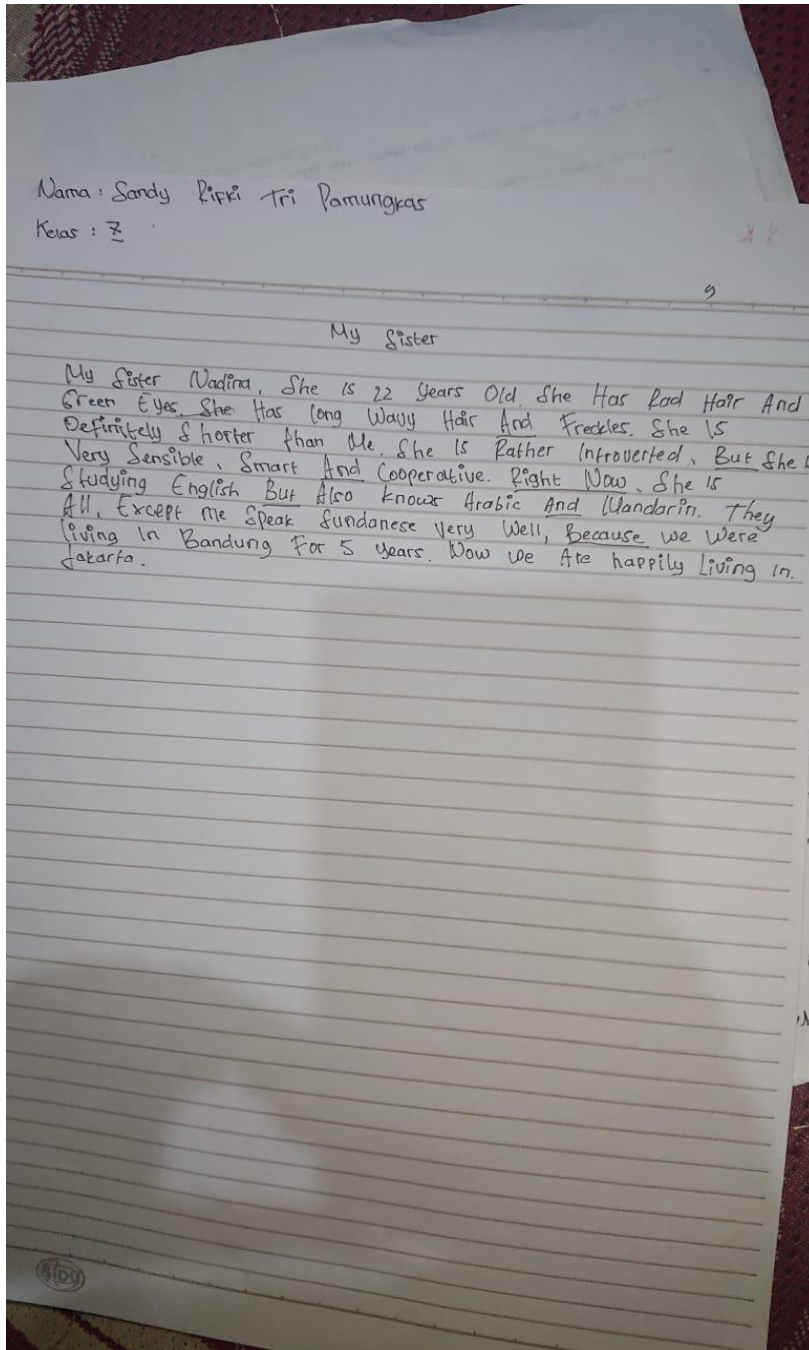 Nama : Sandy Rifki Tri Pamungkas
Kelas : Z
9
My Sister
My Sister Nadina, She Is 22 Years Old. She Has Rad Hair And
Green Eyes. She Has long Wavy Hair And Freckles. She Is
Definitely Shorter than Me. She Is Rather Introverted, But She is
Very Sensible, Smart And Cooperative. Right Now, She is
Studying English But Also knows Arabic And Mandarin. They
All, Except me Speak Sundanese Very Well, Because we Were
living In Bandung For 5 years. Now we Are happily Living in.
Jakarta.
SIDU